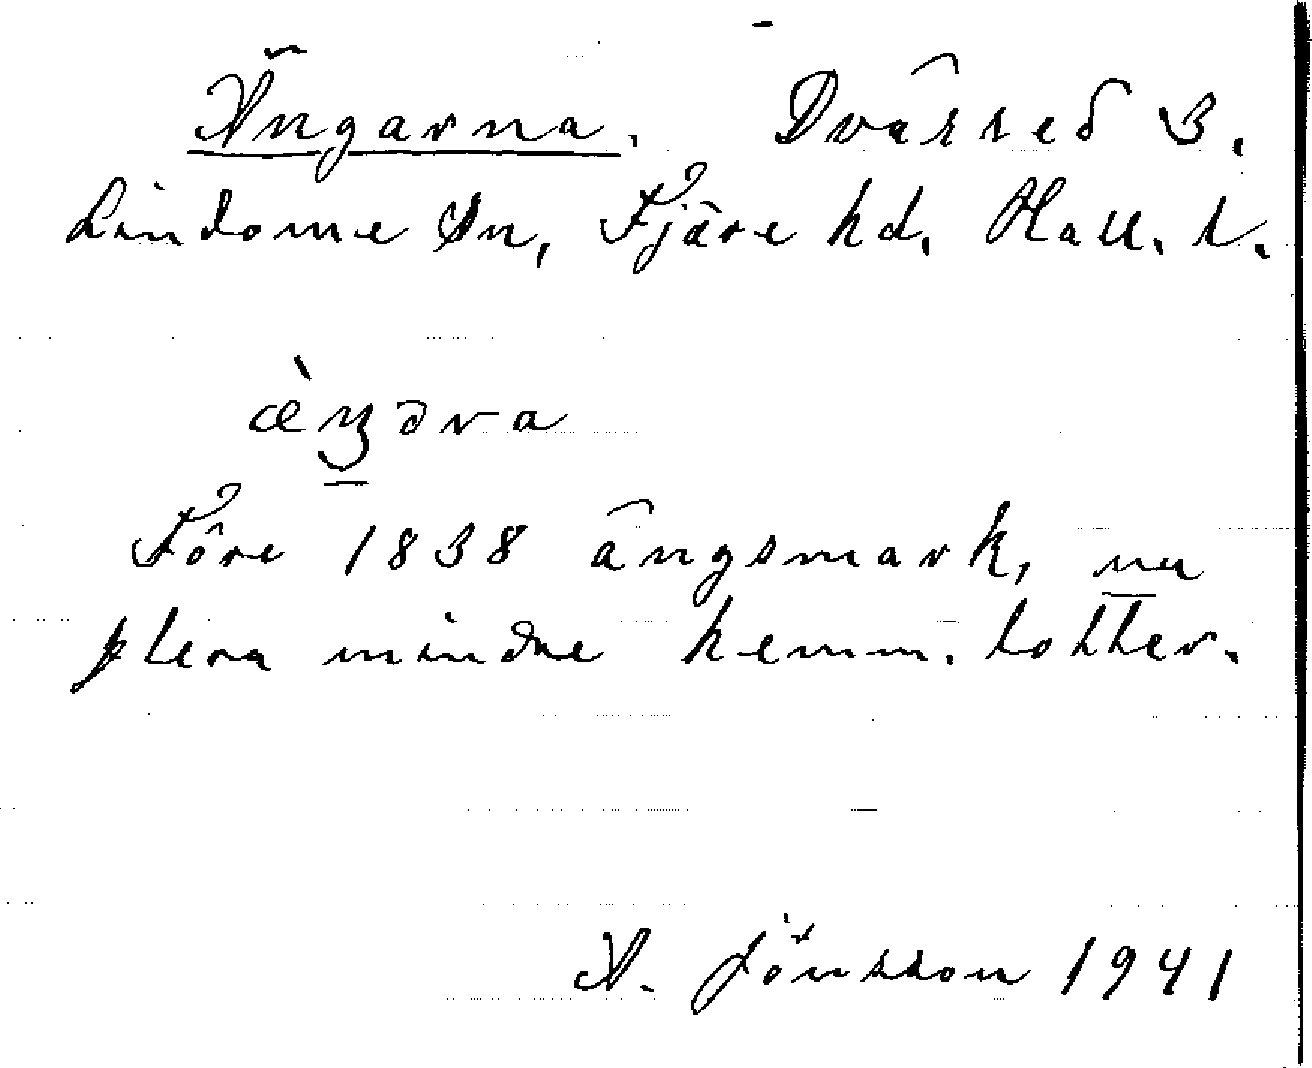 Ängarna. Dvärred 3.
Lindome sn, Fjäre hd. Hall. l.
æ̀ŋəra
Före 1838 ängsmark, nu
flera mindre hemm. lotter.
A. Jönsson 1941